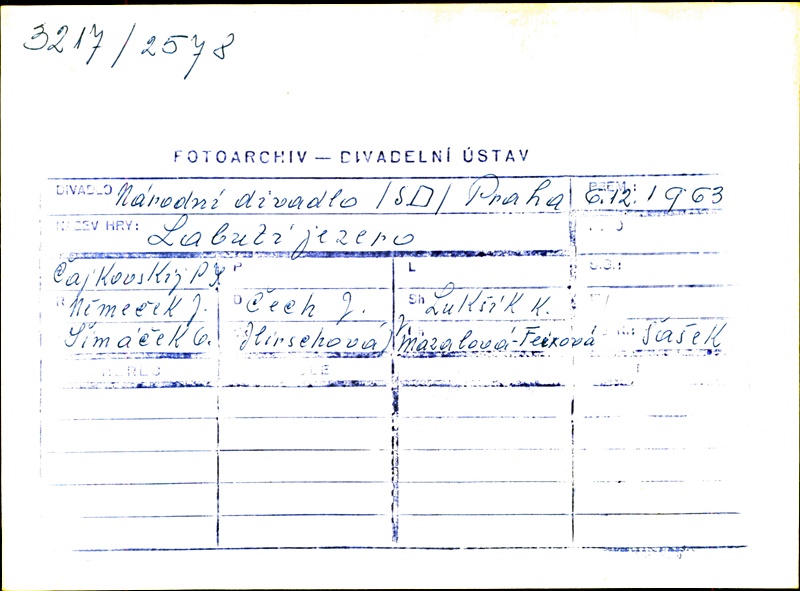 3217/2578
FOTOARCHIV — DIVADELNÍ ÚSTAV
DIVADLO Národní divadlo /SD/ Praha PREM.: 6.12.1963
NÁZEV HRY: Labutí jezero
Čajkovskij P. P L
R Němeček J. D Čech J. Sh Lukšík K.
Šimáček O. Hirschová Mazalová-Feixová Šašek